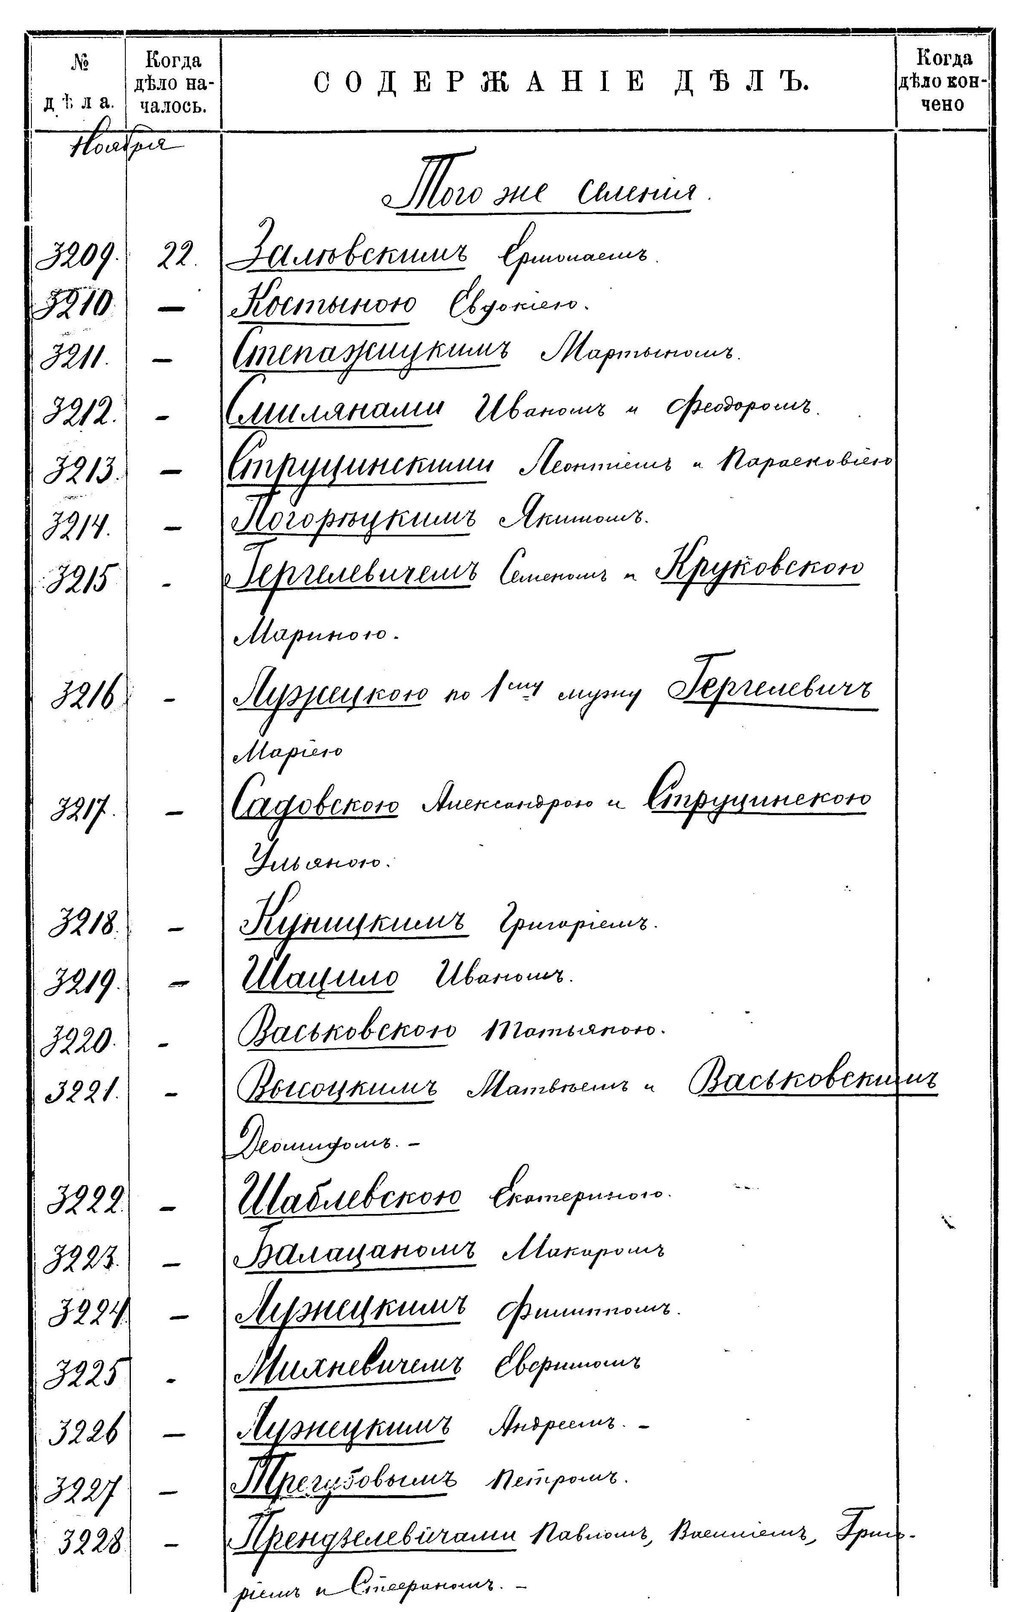 № дѣла.
Когда дѣло началось.
СОДЕРЖАНІЕ ДѢЛЪ.
Когда дѣло кончено
Ноября
Того же селенія.
3209. 22. Залювскимъ Ермолаемъ.
3210 — Костыною Евдокіею.
3211. — Степажицкимъ Мартыномъ.
3212. - Смилянами Иваномъ и Феодоромъ.
3213. — Струцинскими Леонтіемъ и Парасковіею
3214. - Погорѣцкимъ Якимомъ.
3215 - Гергелевичемъ Семеномъ и Круковскою
Мариною.
3216 - Лужецкою по 1му мужу Гергелевичъ
Маріею
3217. - Садовскою Александрою и Струцинскою
Ульяною.
3218. - Куницкимъ Григоріемъ.
3219. - Шацило Иваномъ.
3220. - Васьковскою Татьяною.
3221. - Высоцкимъ Матвѣемъ и Васьковскимъ
Деомидомъ. -
3222 - Шаблевскою Екатериною.
3223. - Балацаномъ Макаромъ
3224 - Лужецкимъ Филиппомъ.
3225 - Михневичемъ Евфимомъ
3226 — Лужецкимъ Андреемъ. -
3227 - Трегубовымъ Петромъ.
3228 - Прендзелевичами Павломъ, Василіемъ, Григо-
ріемъ и Стефаномъ. -